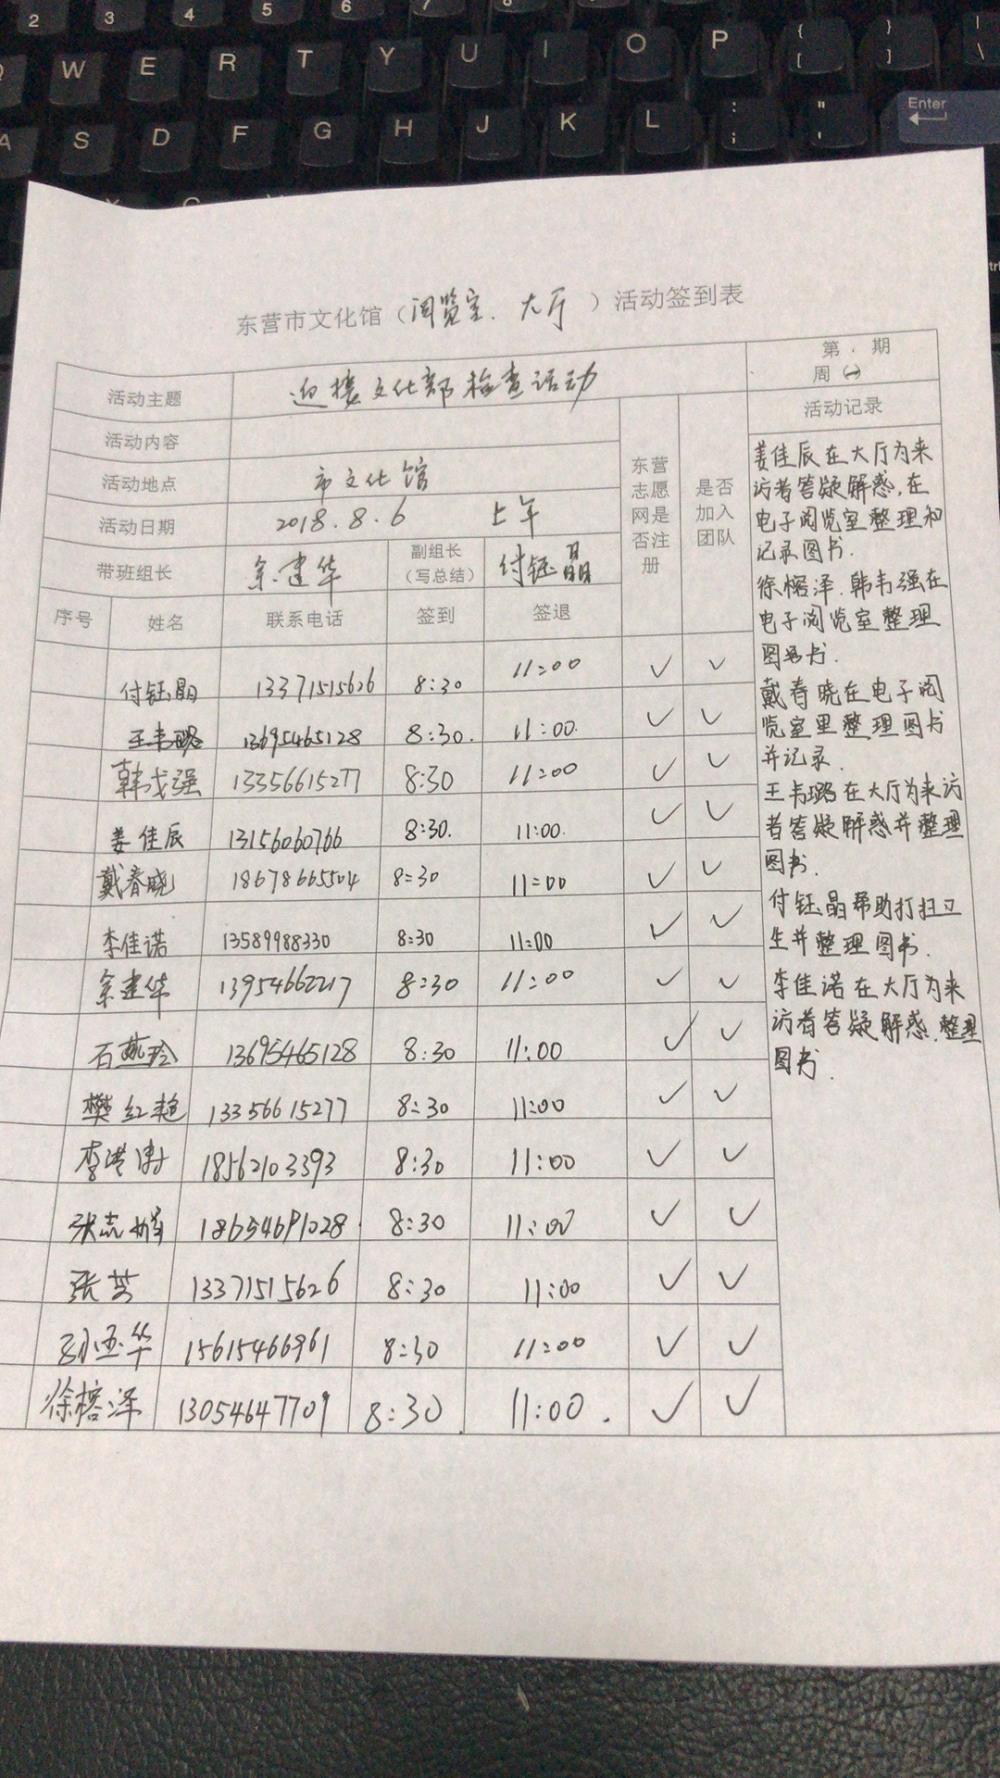 2 3 4 5 6 7 8 9 0
W E R T Y U I O P { [ } ] | \
A S D F G H J K L : ; " ' Enter
东营市文化馆（阅览室、大厅）活动签到表
活动主题 迎接文化部检查活动 第 期
周(一)
活动内容
活动地点 市文化馆
活动日期 2018.8.6 上午
带班组长 余建华 副组长（写总结） 付钰晶
东营志愿网是否注册
是否加入团队
活动记录
序号 姓名 联系电话 签到 签退
付钰晶 13371515626 8:30 11:00 ✓ ✓
王韦璐 13695465128 8:30. 11:00. ✓ ✓
韩 强 13356615277 8:30 11:00 ✓ ✓
姜佳辰 13156060766 8:30. 11:00. ✓ ✓
戴春晓 18678665504 8:30 11:00 ✓ ✓
李佳诺 13589988330 8:30 11:00 ✓ ✓
余建华 13954662217 8:30 11:00 ✓ ✓
石燕玲 13695465128 8:30 11:00 ✓ ✓
樊红艳 13356615277 8:30 11:00 ✓ ✓
李洪 18562103393 8:30 11:00 ✓ ✓
张志娟 18654691028 8:30 11:00 ✓ ✓
张芸 13371515626 8:30 11:00 ✓ ✓
孙玉华 15615466961 8:30 11:00 ✓ ✓
徐榕泽 13054647709 8:30. 11:00. ✓ ✓
姜佳辰在大厅为来
访者答疑解惑,在
电子阅览室整理和
记录图书.
徐榕泽.韩韦强在
电子阅览室整理
图书.
戴春晓在电子阅
览室里整理图书
并记录.
王韦璐在大厅为来访
者答疑解惑并整理
图书.
付钰晶帮助打扫卫
生并整理图书.
李佳诺在大厅为来
访者答疑解惑.整理
图书.